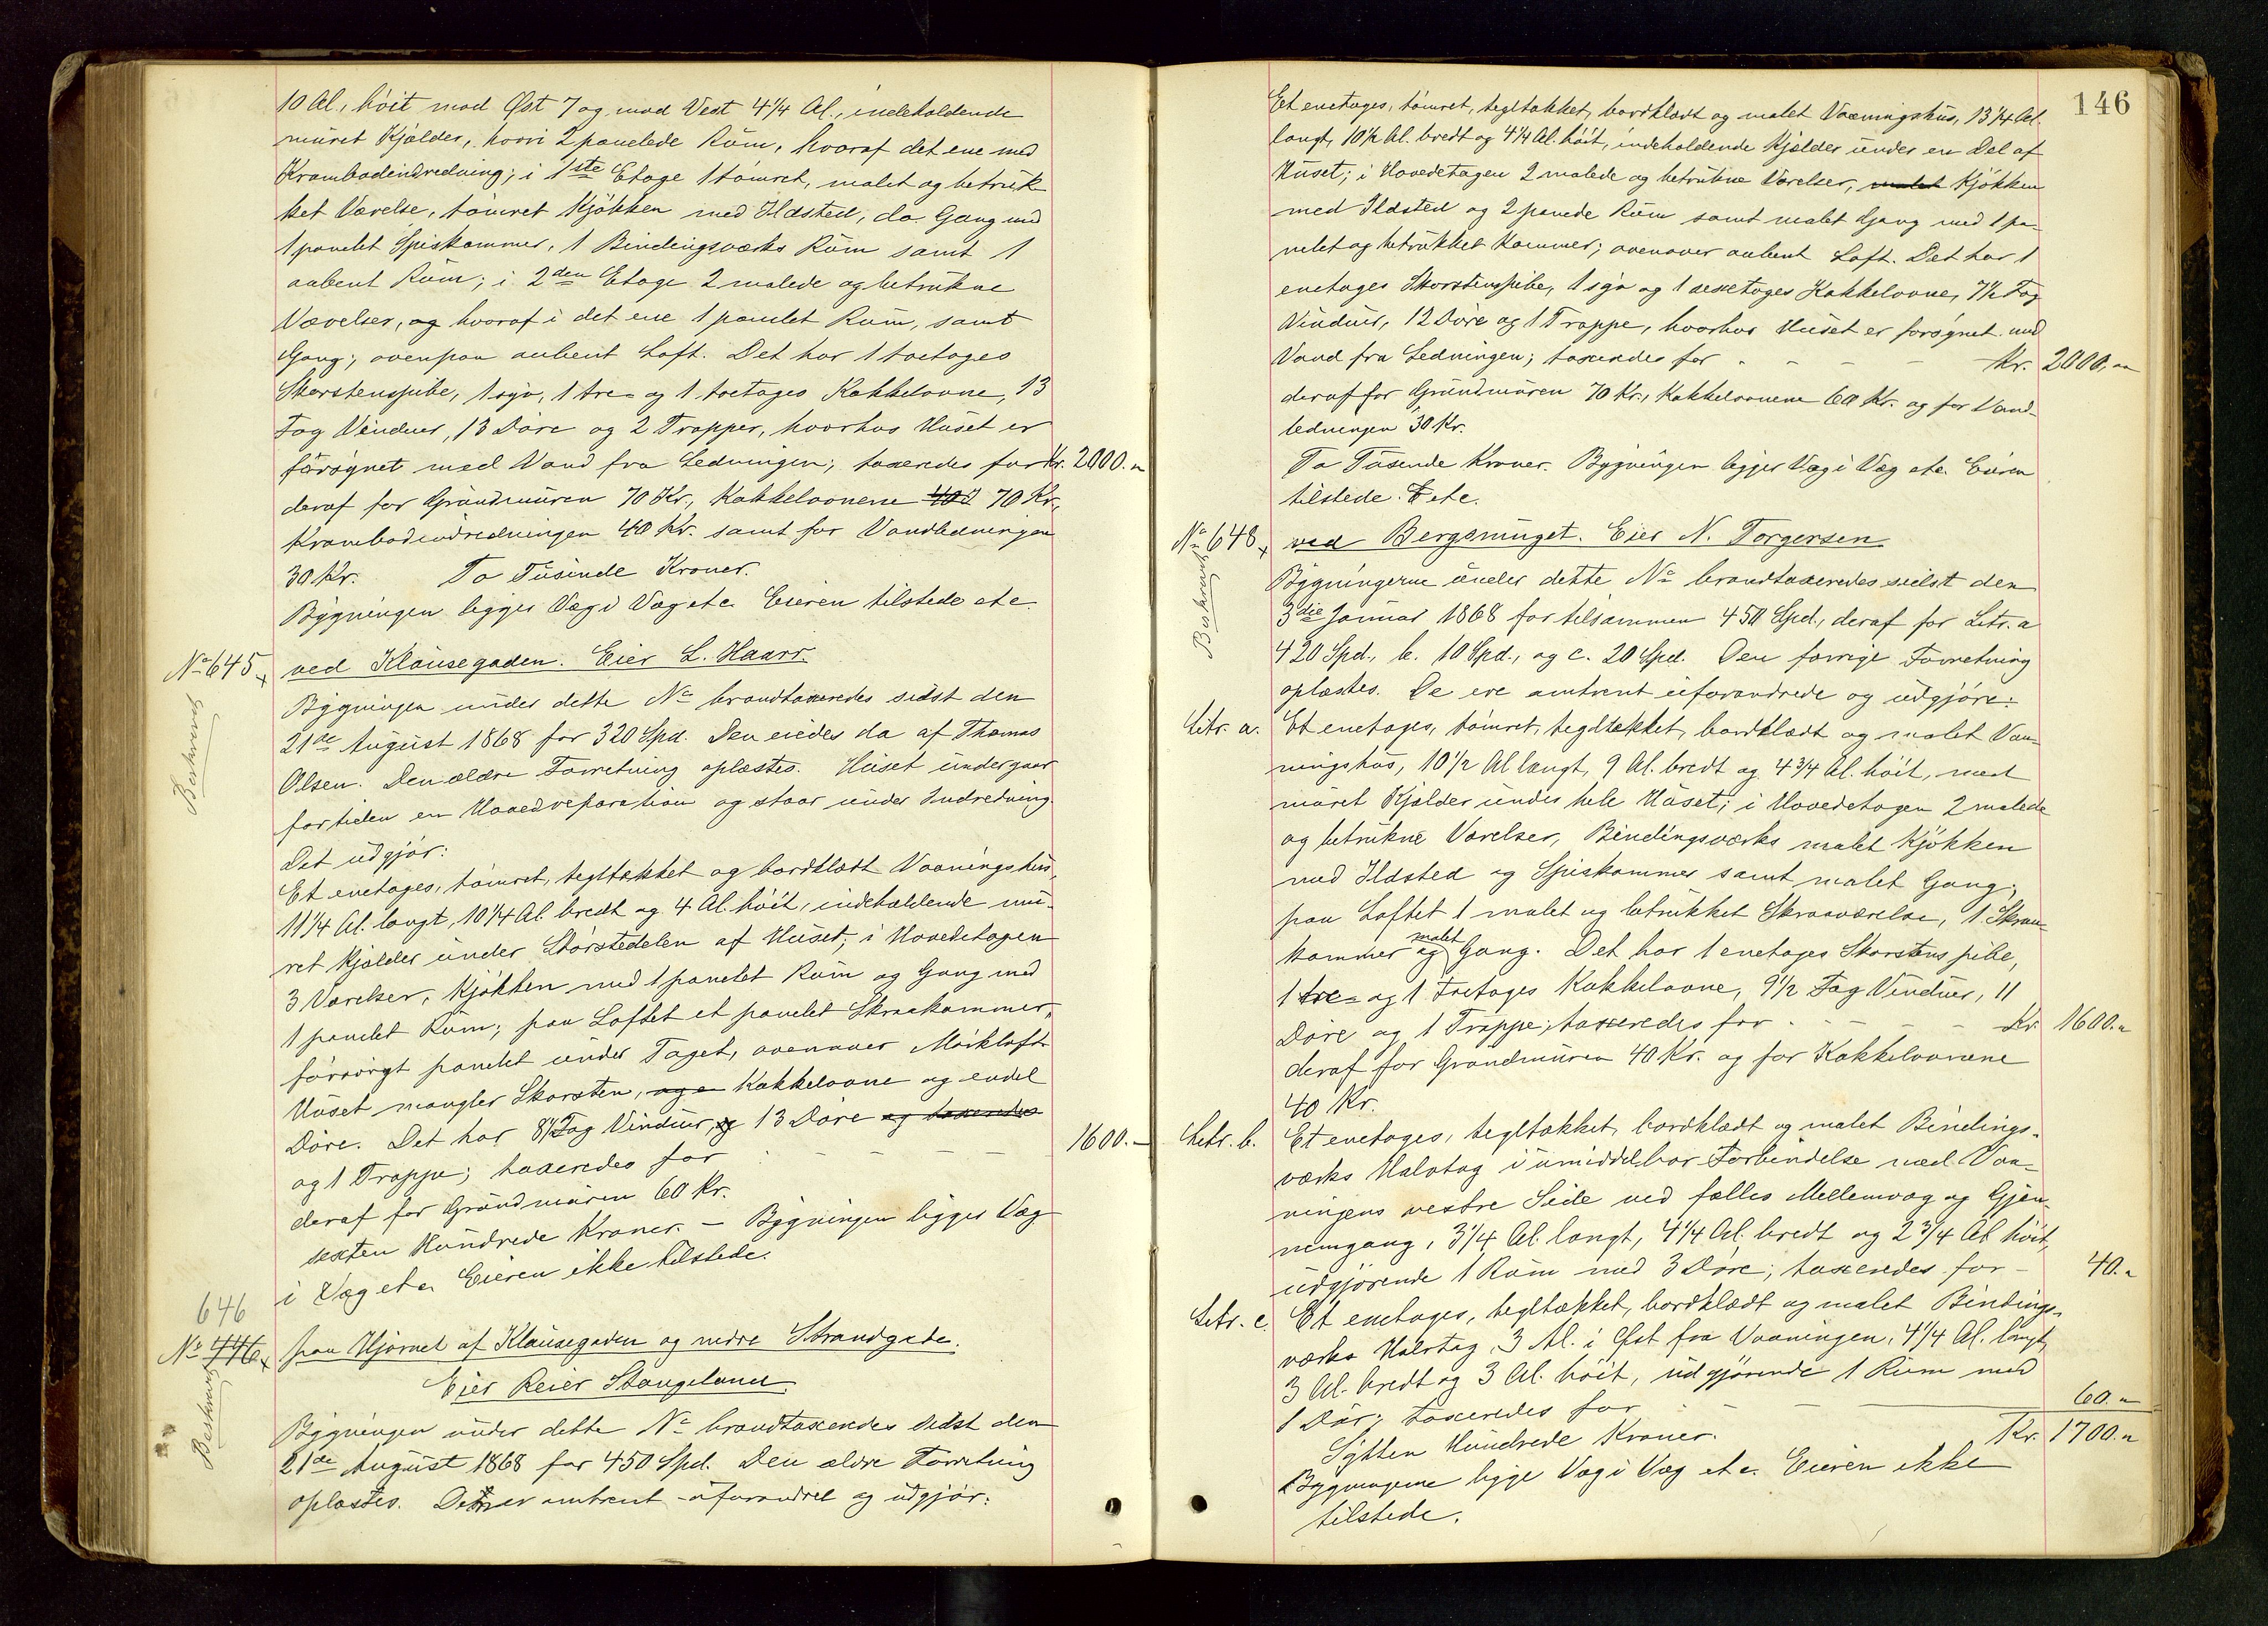 10 Al., høit mod Øst 7 og mod Vest 4 1/4 Al., indeholdende
muret Kjælder, hvori 2 panelede Rum, hvoraf det ene med
Krambodindredning; i 1ste Etage 1 tømret, malet og betruk
ket Værelse, tømret Kjøkken med Ildsted, do. Gang med
1 panelet Spiskammer, 1 Bindingsværks Rum samt 1
aabent Rum; i 2den Etage 2 malede og betrukne
Værelser, og hvoraf i det ene 1 panelet Rum, samt
Gang; ovenpaa aabent Loft. Det har 1 toetages
Skorstenspibe, 1 syv, 1 tre- og 1 toetages Kakkelovne, 13
Fag Vinduer, 13 Døre og 2 Trapper, hvorhos Huset er
forsynet med Vand fra Ledningen; taxeredes for Kr. 2000.„
deraf for Grundmuren 70 Kr., Kakkelovnene 70 Kr.,
Krambodindredningen 40 Kr. samt for Vandledningen
30 Kr. To Tusinde Kroner.
Bygningen ligger Væg i Væg etc. Eieren tilstede etc.
No 645 ved Klausegaden. Eier L. Haarr.
Beskrevet
Bygningen under dette No brandtaxeredes sidst den
21de August 1868 for 320 Spd. Den eiedes da af Thomas
Olsen. Den ældre Forretning oplæstes. Huset undergaar
fortiden en Hovedreparation og staar under Indredning.
Det udgjør:
Et enetages, tømret, tegltækket og bordklædt Vaaningshus,
11 1/4 Al. langt, 10 1/4 Al. bredt og 4 Al. høit, indeholdende mu-
ret Kjælder under Størstedelen af Huset; i Hovedetagen
3 Værelser, Kjøkken med 1 panelet Rum og Gang med
1 panelet Rum; paa Loftet et panelet Skraakammer,
forøvrigt panelet under Taget, ovenover Mørkloft.
Huset mangler Skorsten, Kakkelovne og endel
Døre. Det har 8 1/2 Fag Vinduer, 13 Døre og taxeredes
og 1 Trappe; taxeredes for - - - - 1600.-
deraf for Grundmuren 60 Kr.
sexten Hundrede Kroner. - Bygningen ligger Væg
i Væg etc. Eieren ikke tilstede.
646
No 446 paa Hjørnet af Klausegaden og nedre Strandgade.
Beskrevet
Eier Reier Stangeland.
Bygningen under dette No brandtaxeredes sidst den
21de August 1868 for 450 Spd. Den ældre Forretning
oplæstes. Den er omtrent uforandret og udgjør:
146
Et enetages, tømret, tegltækket, bordklædt og malet Vaaningshus, 13 1/4 Al.
langt, 10 1/2 Al. bredt og 4 1/4 Al. høit, indeholdende Kjælder under en Del af
Huset; i Hovedetagen 2 malede og betrukne Værelser, malet Kjøkken
med Ildsted og 2 panede Rum samt malet Gang med 1 pa-
nelet og betrukket Kammer; ovenover aabent Loft. Det har 1
enetages Skorstenspibe, 1 syv og 1 sexetages Kakkelovne, 7 1/2 Fag
Vinduer, 12 Døre og 1 Trappe, hvorhos Huset er forsynet med
Vand fra Ledningen; taxeredes for - - - - Kr. 2000,„
deraf for Grundmuren 70 Kr., Kakkelovnene 60 Kr. og for Vand-
ledningen 30 Kr.
To Tusende Kroner. Bygningen ligger Væg i Væg etc. Eieren
tilstede. etc.
No 648 ved Bergsmuget. Eier N. Torgersen
Beskrevet
Bygningerne under dette No brandtaxeredes sidst den
3die Januar 1868 for tilsammen 450 Spd., deraf for Litr. a
420 Spd., b. 10 Spd., og c. 20 Spd. Den forrige Forretning
oplæstes. De ere omtrent uforandrede og udgjøre:
Litr. a. Et enetages, tømret, tegltækket, bordklædt og malet Vaa-
ningshus, 10 1/2 Al. langt, 9 Al. bredt og 4 3/4 Al. høit, med
muret Kjælder under hele Huset; i Hovedetagen 2 malede
og betrukne Værelser, Bindingsværks malet Kjøkken
med Ildsted og Spiskammer samt malet Gang;
paa Loftet 1 malet og betrukket Skraaværelse, 1 Skraa-
kammer og malet Gang. Det har 1 enetages Skorstenspibe,
1 tre- og 1 toetages Kakkelovne, 9 1/2 Fag Vinduer, 11
Døre og 1 Trappe; taxeredes for - - - - Kr. 1600.„
deraf for Grundmuren 40 Kr. og for Kakkelovnene
40 Kr.
Litr. b. Et enetages, tegltækket, bordklædt og malet Bindings-
værks Halvtag i umiddelbar Forbindelse med Vaa-
ningens vestre Side ved fælles Mellemvæg og Gjen-
nemgang, 3 1/4 Al. langt, 4 1/4 Al. bredt og 2 3/4 Al. høit,
udgjørende 1 Rum med 3 Døre; taxeredes for - 40.„
Litr. c. Et enetages, tegltækket, bordklædt og malet Bindings-
værks Halvtag, 3 Al. i Øst fra Vaaningen, 4 1/4 Al. langt,
3 Al. bredt og 3 Al. høit, udgjørende 1 Rum med
1 Dør; taxeredes for - - - - 60.„
Sytten Hundrede Kroner. Kr. 1700.„
Bygningerne ligge Væg i Væg etc. Eieren ikke
tilstede.